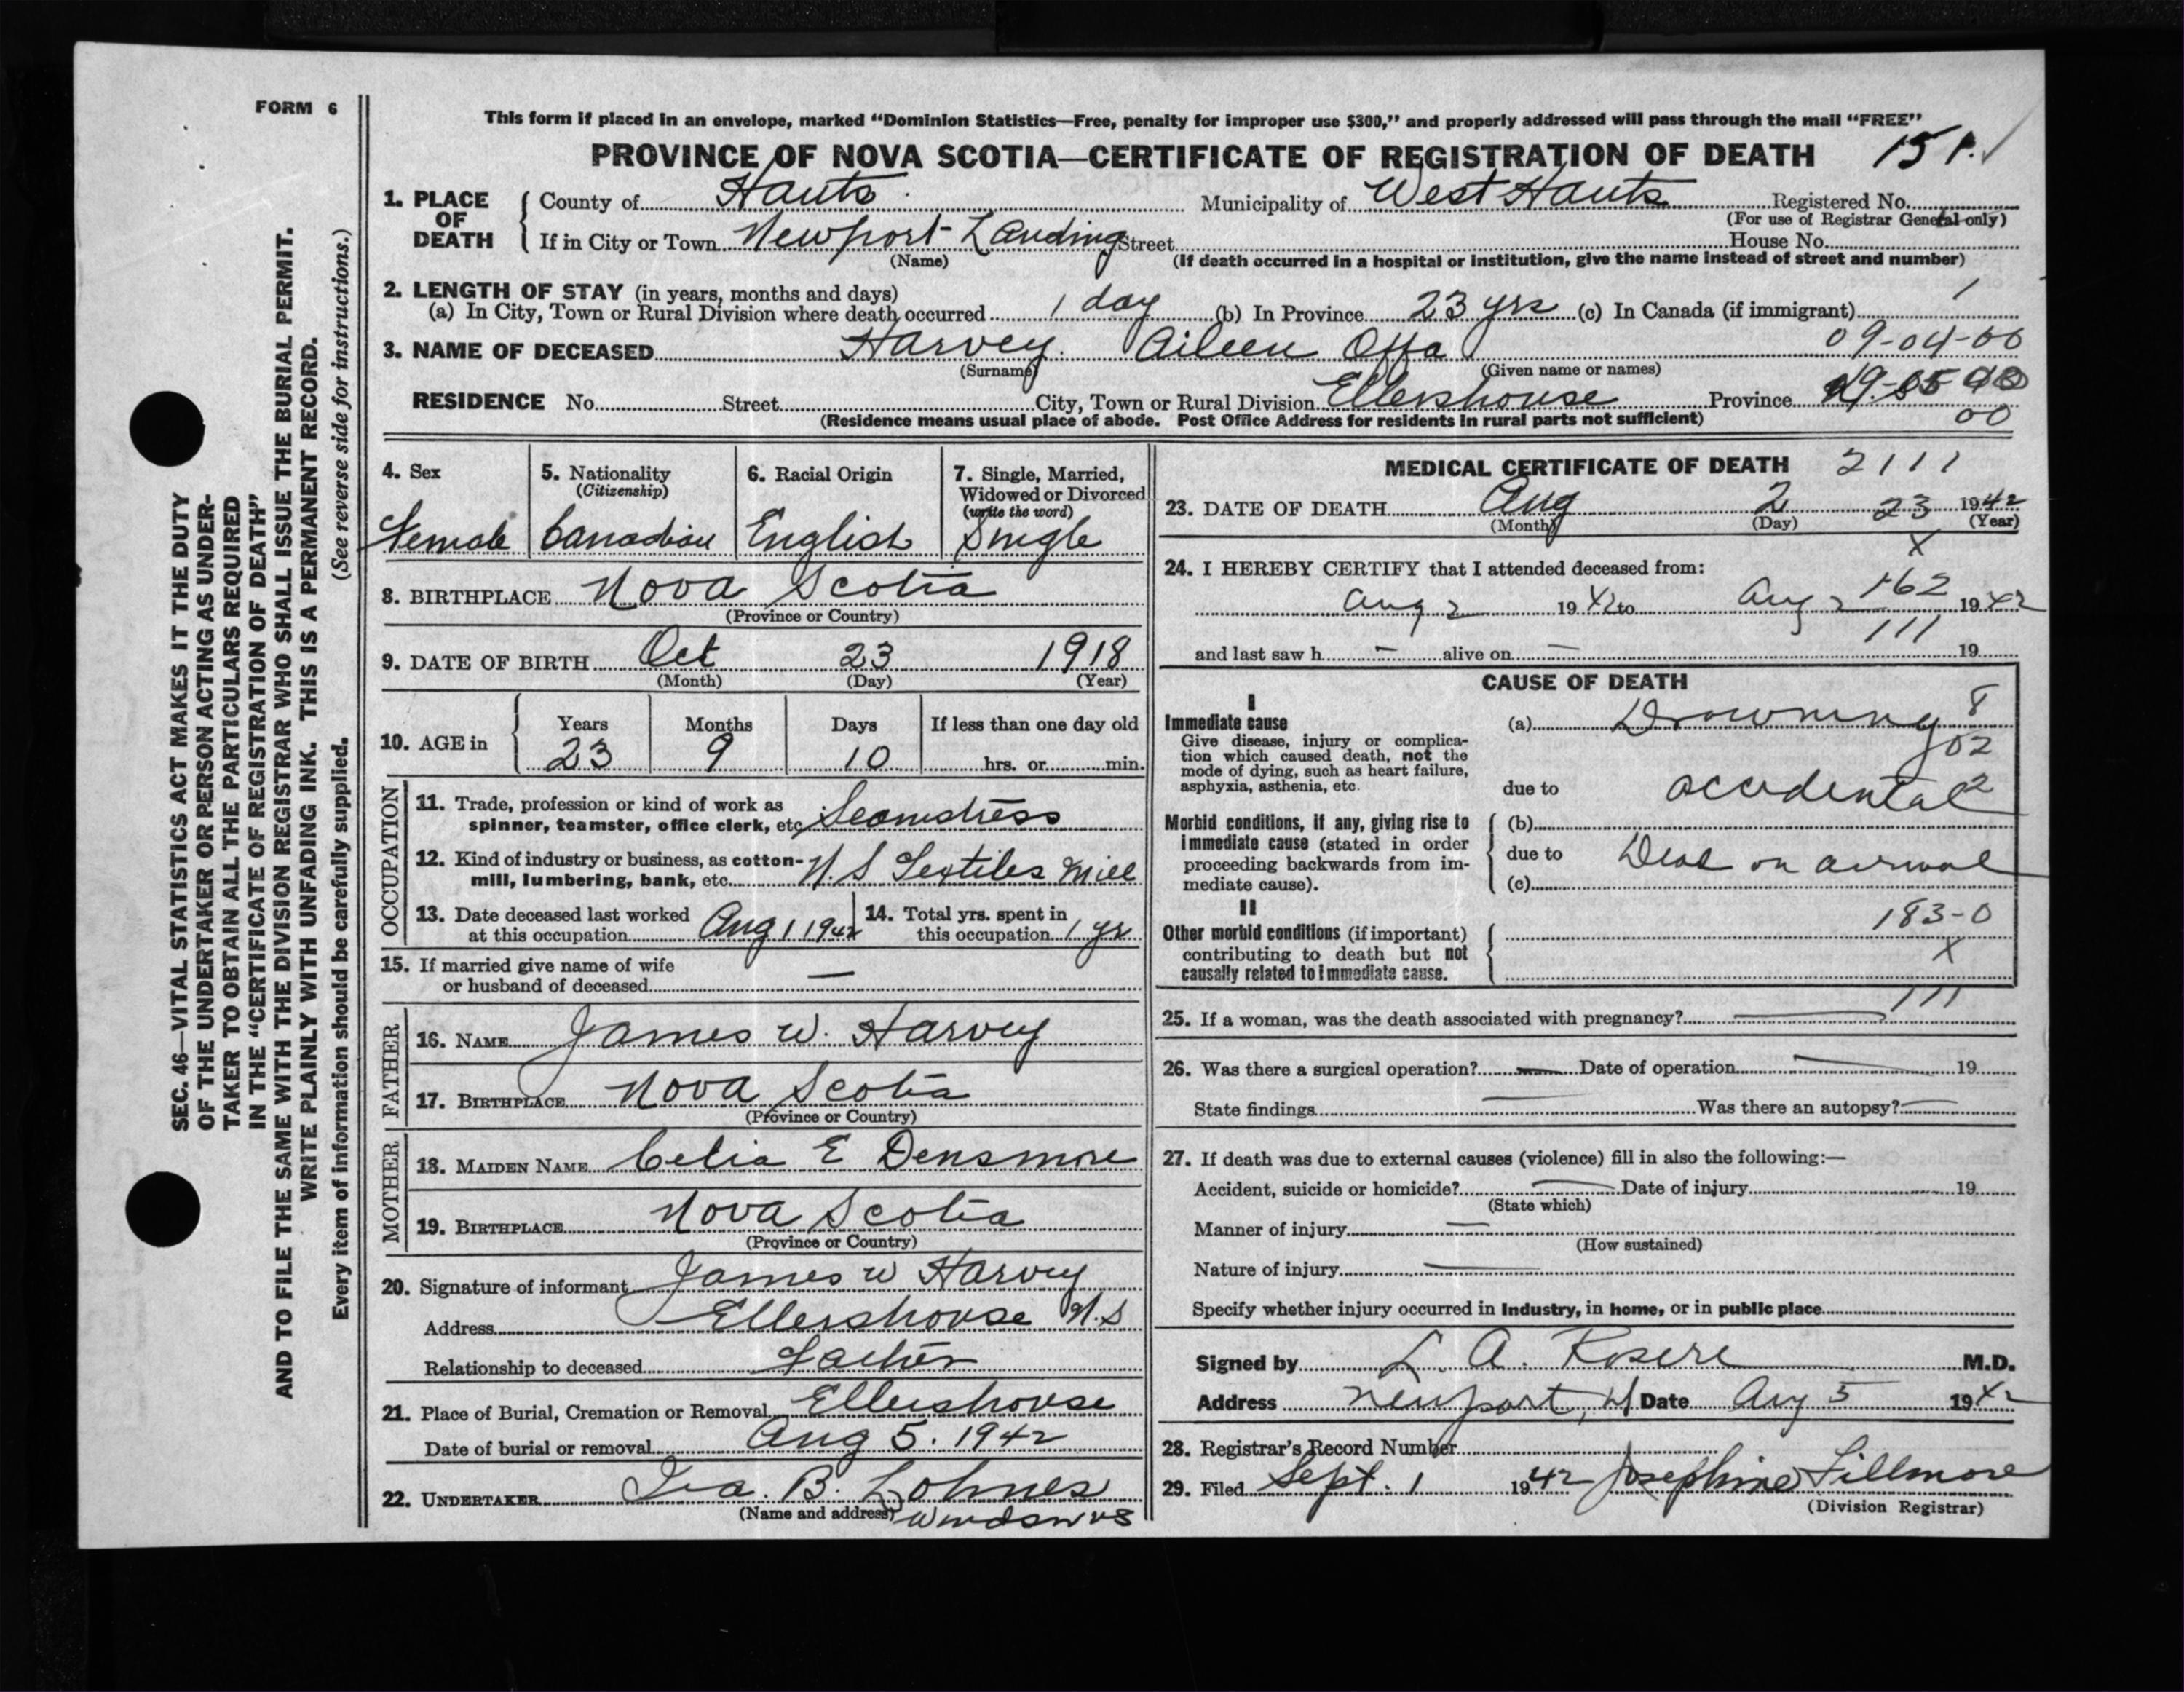 FORM 6
SEC. 46—VITAL STATISTICS ACT MAKES IT THE DUTY
OF THE UNDERTAKER OR PERSON ACTING AS UNDER-
TAKER TO OBTAIN ALL THE PARTICULARS REQUIRED
IN THE "CERTIFICATE OF REGISTRATION OF DEATH"
AND TO FILE THE SAME WITH THE DIVISION REGISTRAR WHO SHALL ISSUE THE BURIAL PERMIT.
WRITE PLAINLY WITH UNFADING INK. THIS IS A PERMANENT RECORD.
Every item of information should be carefully supplied. (See reverse side for instructions.)
This form if placed in an envelope, marked "Dominion Statistics—Free, penalty for improper use $300," and properly addressed will pass through the mail "FREE"
PROVINCE OF NOVA SCOTIA—CERTIFICATE OF REGISTRATION OF DEATH 151.
1. PLACE OF DEATH County of Hants Municipality of West Hants Registered No.
(For use of Registrar General only)
If in City or Town Newport Landing Street House No.
(Name) (If death occurred in a hospital or institution, give the name instead of street and number)
2. LENGTH OF STAY (in years, months and days)
(a) In City, Town or Rural Division where death occurred 1 day (b) In Province 23 yrs (c) In Canada (if immigrant) 1
3. NAME OF DECEASED Harvey. Aileen Offa 09-04-00
(Surname) (Given name or names)
RESIDENCE No. Street City, Town or Rural Division Ellershouse Province
00
(Residence means usual place of abode. Post Office Address for residents in rural parts not sufficient)
4. Sex
Female
5. Nationality
(Citizenship)
Canadian
6. Racial Origin
English
7. Single, Married,
Widowed or Divorced
(write the word)
Single
8. BIRTHPLACE Nova Scotia
(Province or Country)
9. DATE OF BIRTH Oct 23 1918
(Month) (Day) (Year)
10. AGE in Years Months Days If less than one day old
23 9 10 hrs. or min.
OCCUPATION
11. Trade, profession or kind of work as
spinner, teamster, office clerk, etc. Seamstress
12. Kind of industry or business, as cotton-
mill, lumbering, bank, etc. N.S Textiles Mill
13. Date deceased last worked
at this occupation Aug 1 1942
14. Total yrs. spent in
this occupation 1 yr
15. If married give name of wife
or husband of deceased —
FATHER
16. NAME James W. Harvey
17. BIRTHPLACE Nova Scotia
(Province or Country)
MOTHER
18. MAIDEN NAME Celia E Densmore
19. BIRTHPLACE Nova Scotia
(Province or Country)
20. Signature of informant James W Harvey
Address Ellershouse N.S
Relationship to deceased Father
21. Place of Burial, Cremation or Removal Ellershouse
Date of burial or removal Aug 5. 1942
22. UNDERTAKER Ira. B. Lohnes
(Name and address) Windsor NS
MEDICAL CERTIFICATE OF DEATH 2111
23. DATE OF DEATH Aug 2 23 1942
(Month) (Day) (Year)
X
24. I HEREBY CERTIFY that I attended deceased from:
162
Aug 2 1942 to Aug 2 1942
111
and last saw h — alive on — 19
CAUSE OF DEATH
I
Immediate cause
Give disease, injury or complica-
tion which caused death, not the
mode of dying, such as heart failure,
asphyxia, asthenia, etc.
(a) Drowning 8
02
due to accidental 2
Morbid conditions, if any, giving rise to
immediate cause (stated in order
proceeding backwards from im-
mediate cause).
(b)
due to Dead on arrival
(c)
II
183-0
Other morbid conditions (if important)
contributing to death but not
causally related to immediate cause.
X
111
25. If a woman, was the death associated with pregnancy? —
26. Was there a surgical operation? — Date of operation — 19
State findings — Was there an autopsy? —
27. If death was due to external causes (violence) fill in also the following:—
Accident, suicide or homicide? — Date of injury 19
(State which)
Manner of injury —
(How sustained)
Nature of injury —
Specify whether injury occurred in Industry, in home, or in public place
Signed by L. A. M.D.
Address Newport, Date Aug 5 1942
28. Registrar's Record Number
29. Filed Sept. 1 1942 Josephine Fillmore
(Division Registrar)